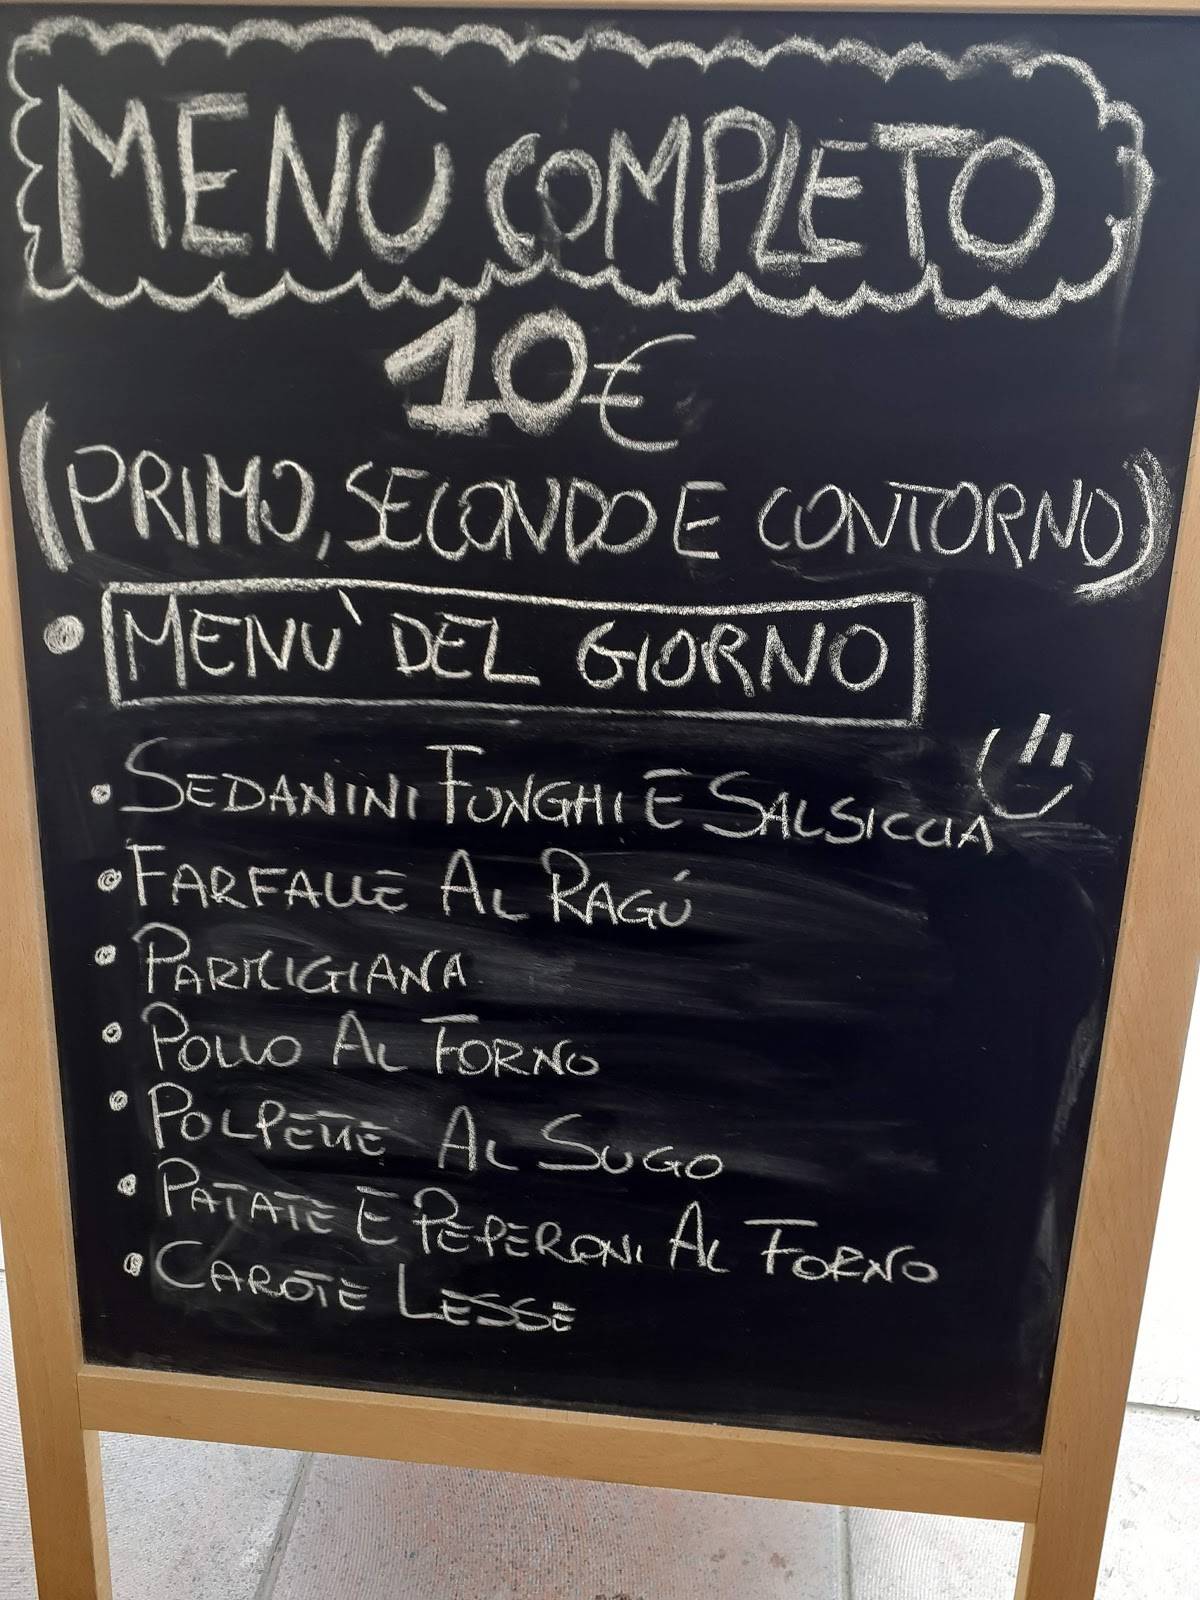 MENÙ COMPLETO
10€
(PRIMO, SECONDO E CONTORNO)
• MENÙ DEL GIORNO
• SEDANINI FUNGHI E SALSICCIA
• FARFALLE AL RAGÚ
• PARMIGIANA
• POLLO AL FORNO
• POLPETTE AL SUGO
• PATATE E PEPERONI AL FORNO
• CAROTE LESSE